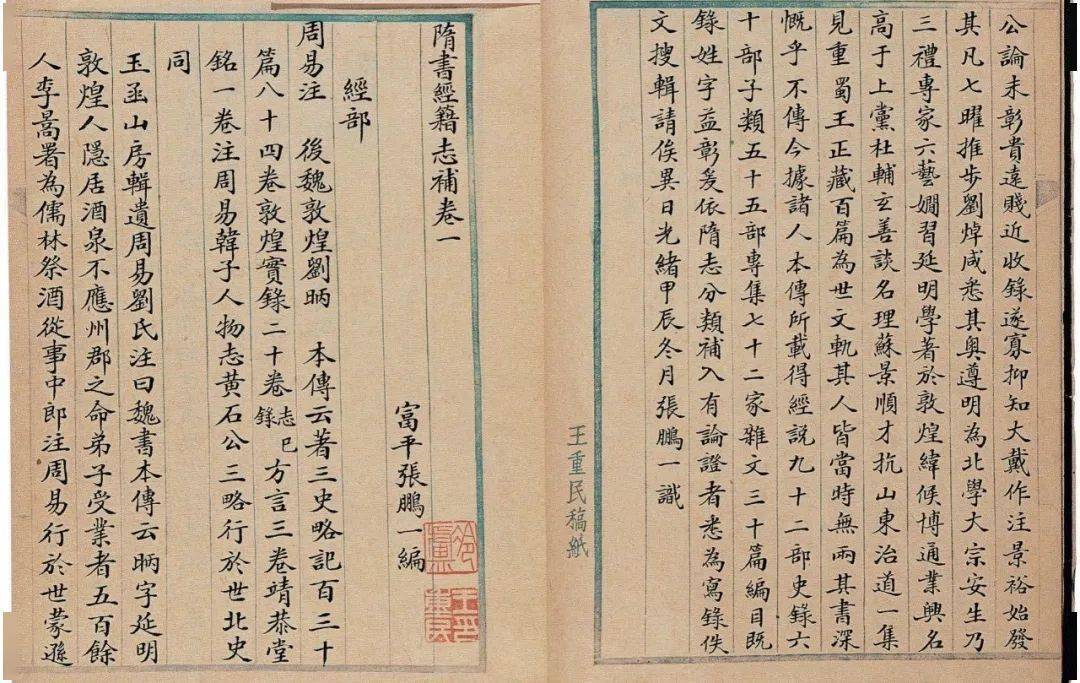 公論未彰貴遠賤近收錄遂寡抑知大戴作注景裕始發
其凡七曜推步劉焯咸悉其奧遵明為北學大宗安生乃
三禮專家六藝嫺習延明學著於敦煌緯候博通業興名
高于上黨杜輔玄善談名理蘇景順才抗山東治道一集
見重蜀王正藏百篇為世文軌其人皆當時無兩其書深
慨乎不傳今據諸人本傳所載得經説九十二部史錄六
十部子類五十五部專集七十二家雜文三十篇編目既
錄姓字益彰爰依隋志分類補入有論證者悉為寫錄佚
文搜輯請俟異日光緒甲辰冬月張鵬一識
王重民稿紙
隋書經籍志補卷一
富平張鵬一編
經部
周易注 後魏敦煌劉昞 本傳云著三史略記百三十
篇八十四卷敦煌實錄二十卷志巳錄方言三卷靖恭堂
銘一卷注周易韓子人物志黃石公三略行於世北史
同
玉函山房輯遺周易劉氏注曰魏書本傳云昞字延明
敦煌人隱居酒泉不應州郡之命弟子受業者五百餘
人李暠署為儒林祭酒從事中郎注周易行於世蒙遜